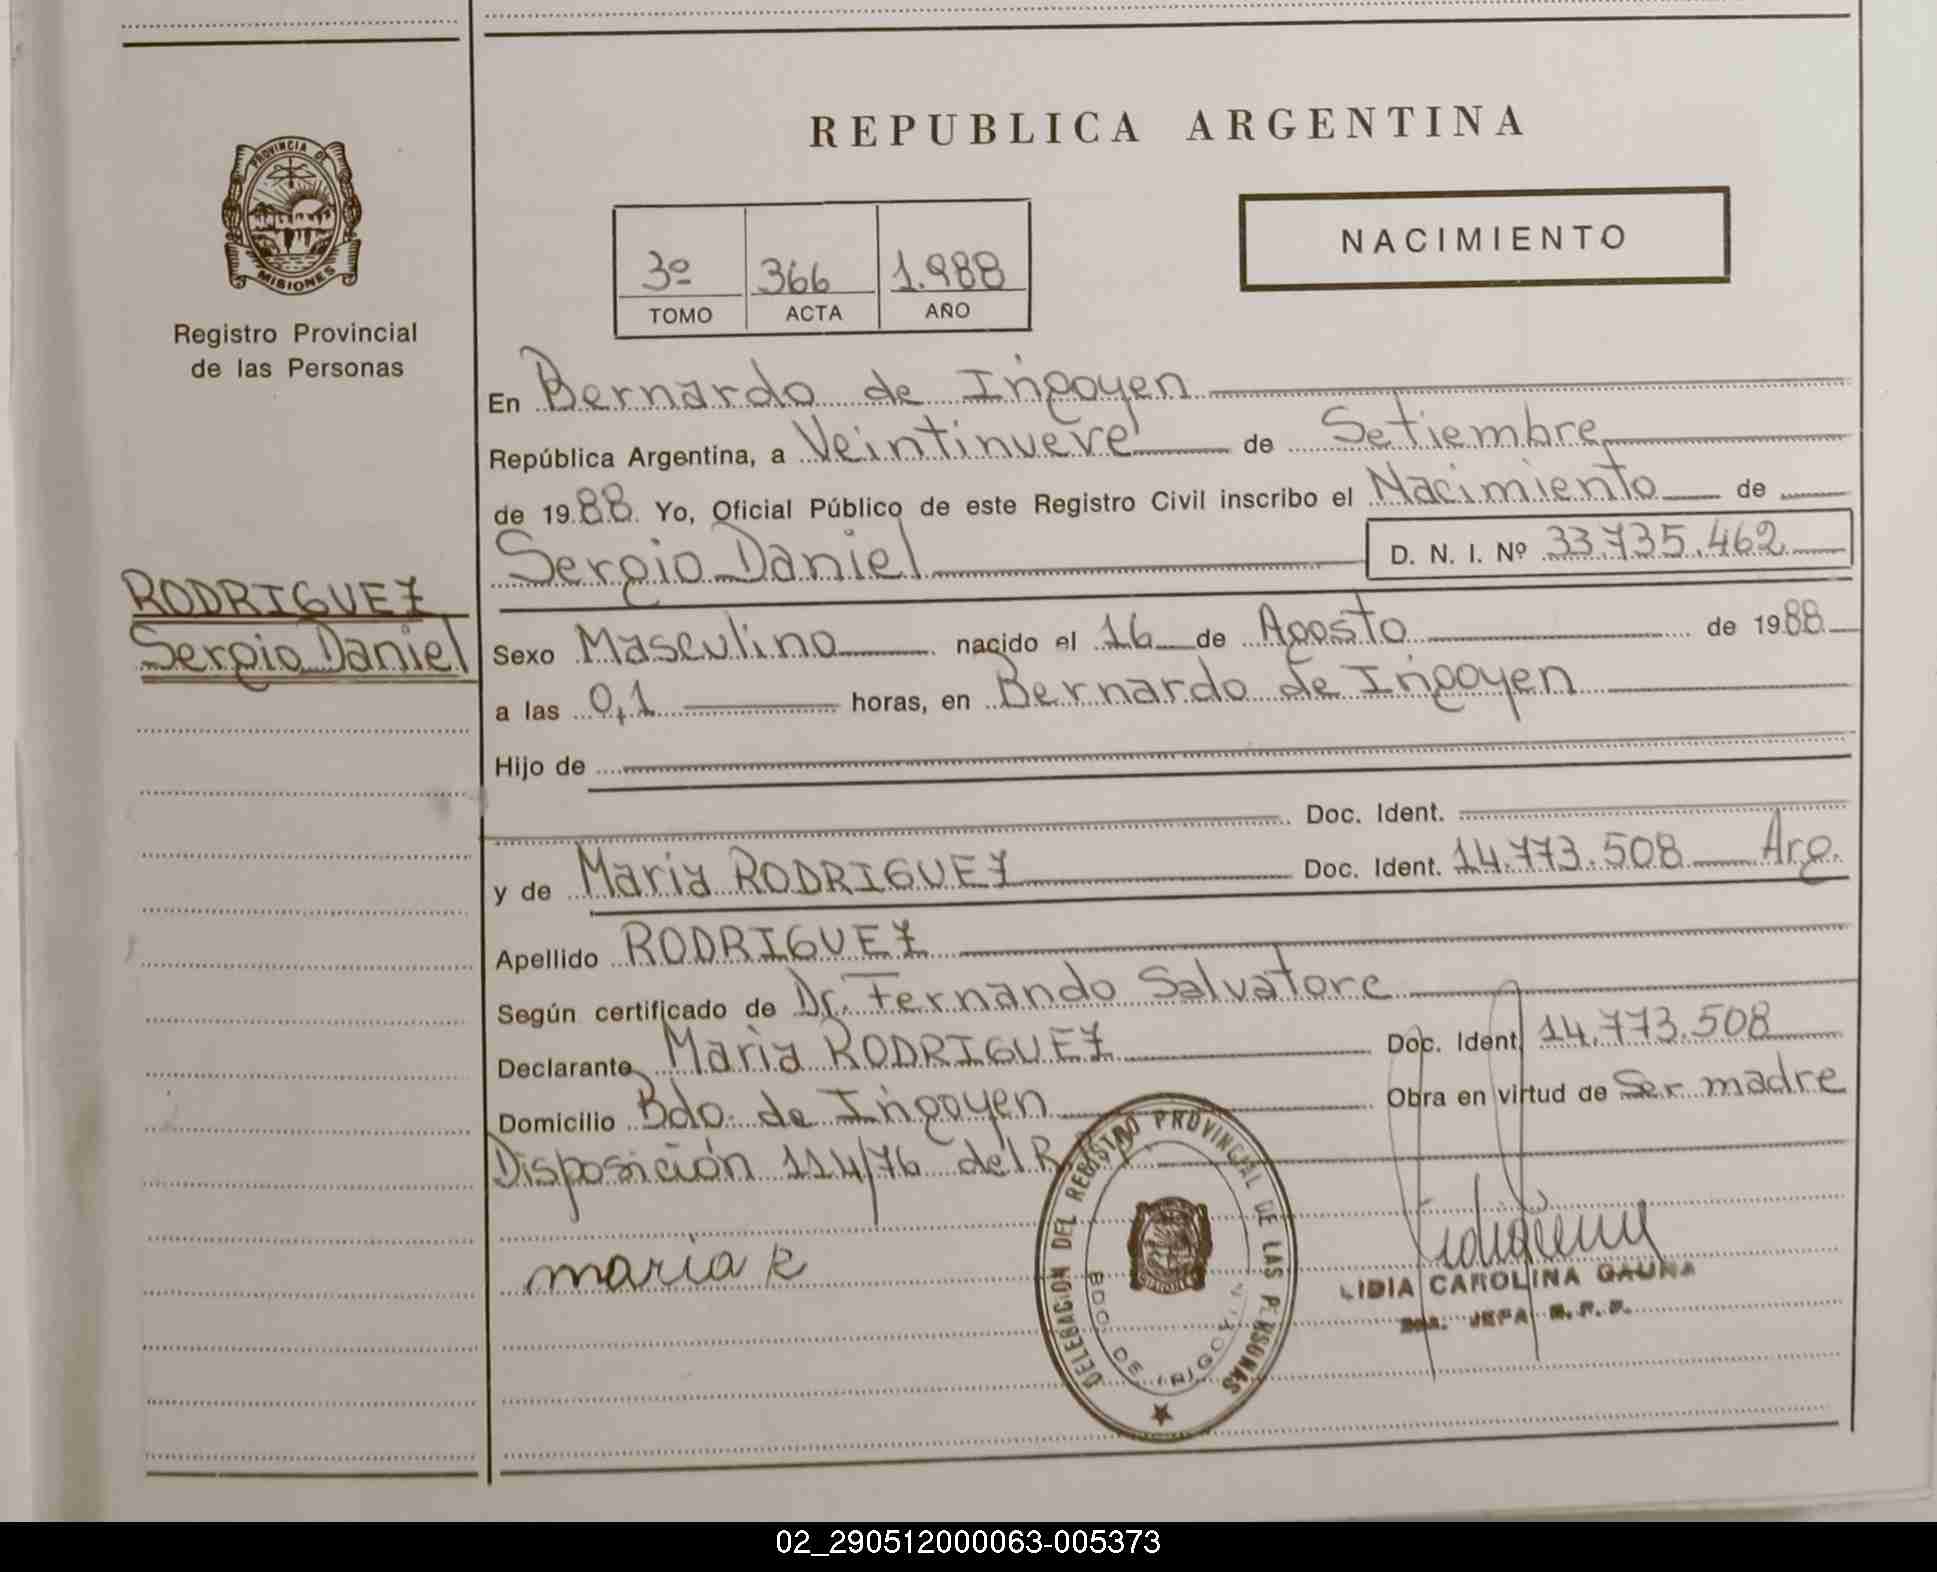 REPUBLICA ARGENTINA
PROVINCIA DE
MISIONES
Registro Provincial
de las Personas
NACIMIENTO
3º 366 1.988
TOMO ACTA AÑO
En Bernardo de Irigoyen
República Argentina, a Veintinueve de Setiembre
de 1988 Yo, Oficial Público de este Registro Civil inscribo el Nacimiento de
Sergio Daniel D. N. I. Nº 33.735.462
RODRIGUEZ
Sergio Daniel
Sexo Masculino nacido el 16 de Agosto de 1988
a las 0,1 horas, en Bernardo de Irigoyen
Hijo de
Doc. Ident.
y de Maria RODRIGUEZ Doc. Ident. 14.773.508 Arg.
Apellido RODRIGUEZ
Según certificado de Dr. Fernando Salvatore
Declarante Maria RODRIGUEZ Doc. Ident. 14.773.508
Domicilio Bdo. de Irigoyen Obra en virtud de Ser madre
Disposición 114/76 del R.
maria R
DELEGACION DEL REGISTRO PROVINCIAL DE LAS PERSONAS
BDO. DE IRIGOYEN
MISIONES
LIDIA CAROLINA GAUNA
JEFA R. P. P.
02_290512000063-005373